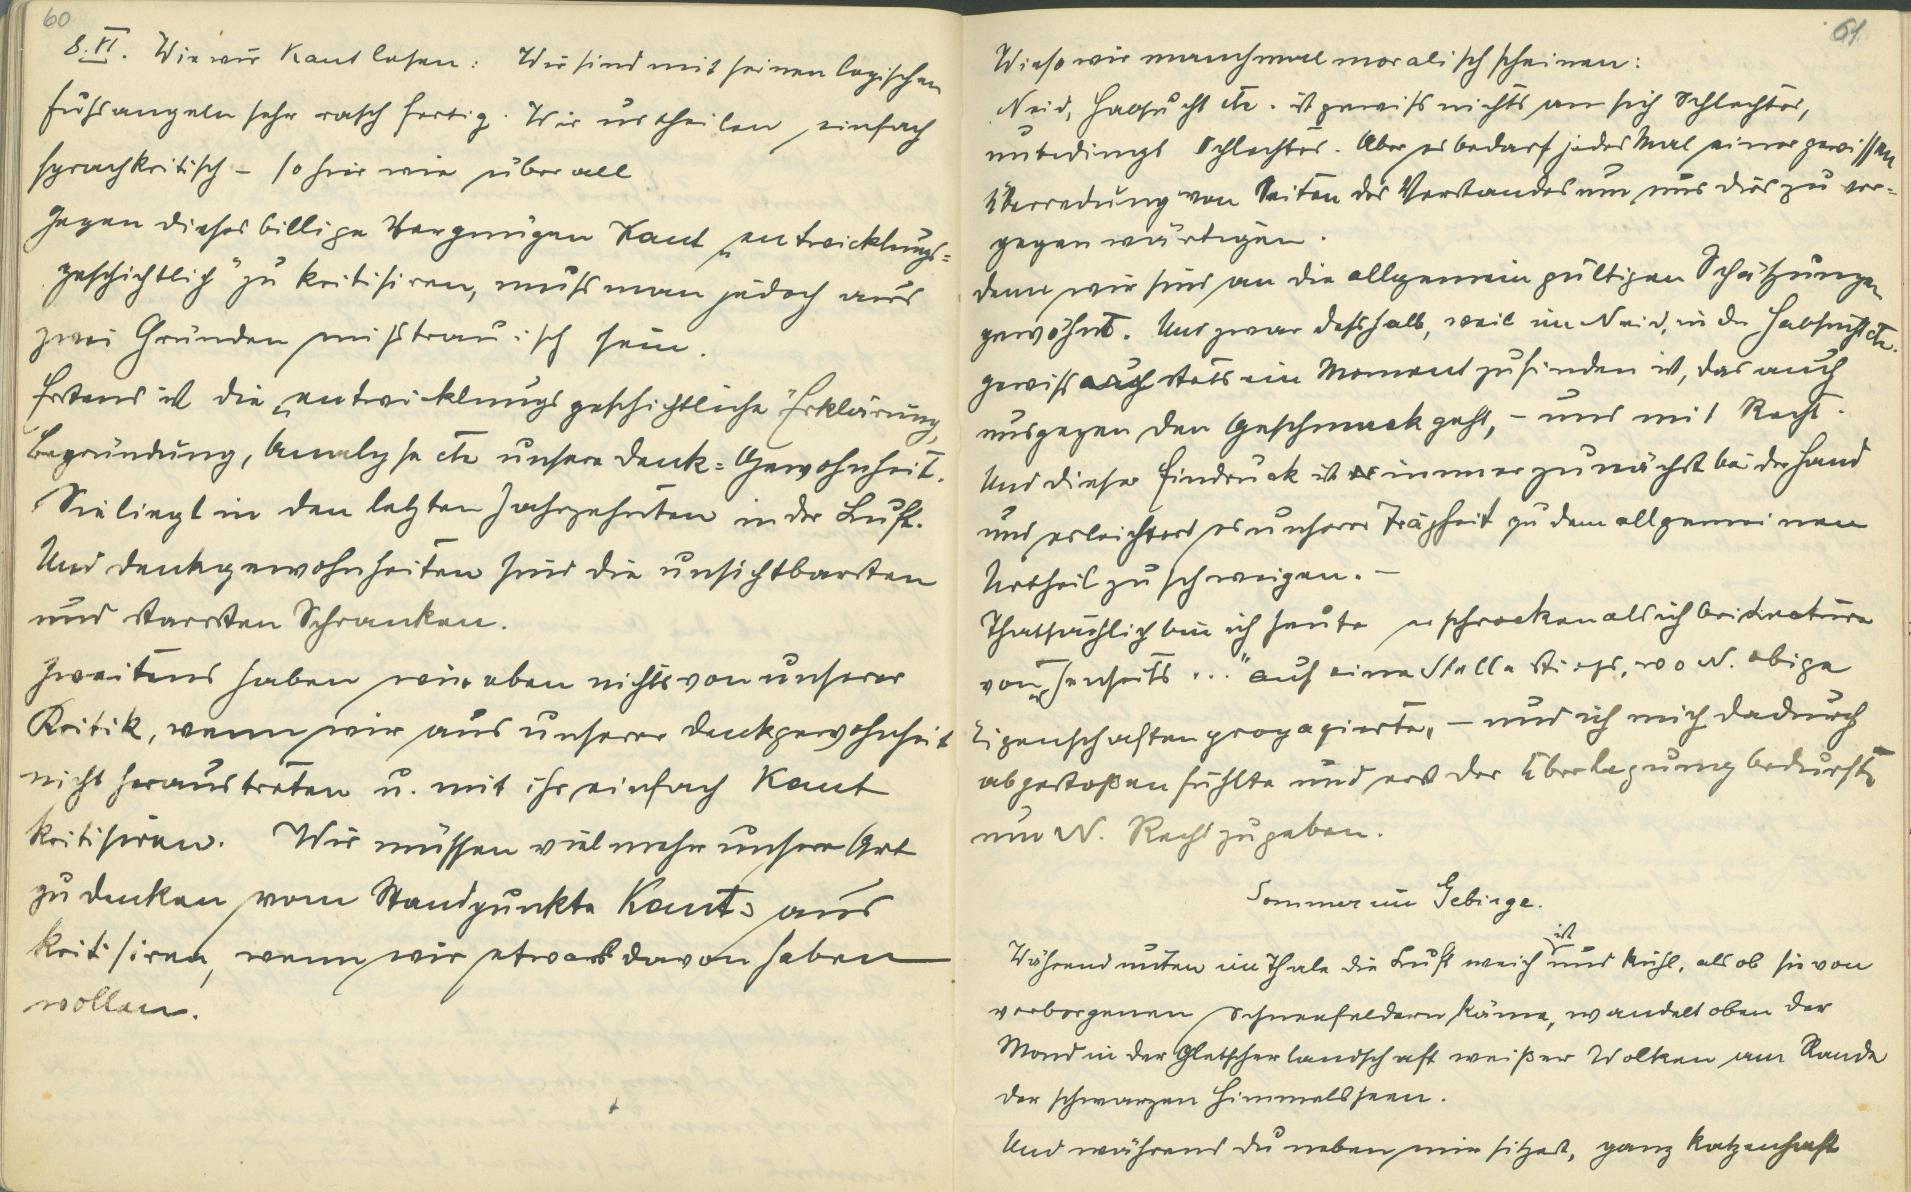 60
8. VI. Wie wir Kant lesen: Wir sind mit seinen logischen
Fußangeln sehr rasch fertig. Wir urtheilen einfach
sprachkritisch – so hier wie überall
Gegen dieses billige Vergnügen Kant „entwicklungs=
geschichtlich" zu kritisiren, muß man jedoch aus
zwei Gründen mißtrauisch sein.
Erstens ist die „entwicklungsgeschichtliche" Erklärung,
Begründung, Analyse etc unsere Denk=Gewohnheit.
Sie liegt in den letzten Jahrzehnten in der Luft.
Und Denkgewohnheiten sind die unsichtbarsten
und starrsten Schranken.
Zweitens haben wir eben nichts von unserer
Kritik, wenn wir aus unserer Denkgewohnheit
nicht heraustreten u. mit ihr einfach Kant
kritisiren. Wir müssen vielmehr unsere Art
zu denken vom Standpunkte Kants aus
kritisiren, wenn wir etwas davon haben
wollen.
61
Wieso wir manchmal moralisch scheinen:
Neid, Habsucht etc. ist gewiß nichts an sich Schlechtes,
unbedingt Schlechtes. Aber es bedarf jedes Mal einer gewissen
Überredung von Seiten des Verstandes um uns dies zu ver=
gegenwärtigen.
denn wir sind an die allgemein gültigen Schätzungen
gewöhnt. Und zwar deßhalb, weil im Neid, in der Habsucht etc.
gewiß auch stets ein Moment zu finden ist, das auch
uns gegen den Geschmack geht, – und mit Recht.
Und dieser Eindruck ist immer zunächst bei der Hand
und erleichtert es unserer Trägheit zu dem allgemeinen
Urtheil zu schweigen. –
Thatsächlich bin ich heute erschrocken als ich bei Lecture
von „Jenseits ..." auf eine Stelle stieß, wo N. obige
Eigenschaften propagierte, – und ich mich dadurch
abgestoßen fühlte und erst der Überlegung bedurfte
um N. Recht zu geben.
Sommer im Gebirge.
Während unten im Thale die Luft weich ist und kühl, als ob sie von
verborgenen Schneefeldern käme, wandelt oben der
Mond in der Gletscherlandschaft weißer Wolken am Rande
der schwarzen Himmelsseen.
Und während du neben mir sitzest, ganz katzenhaft